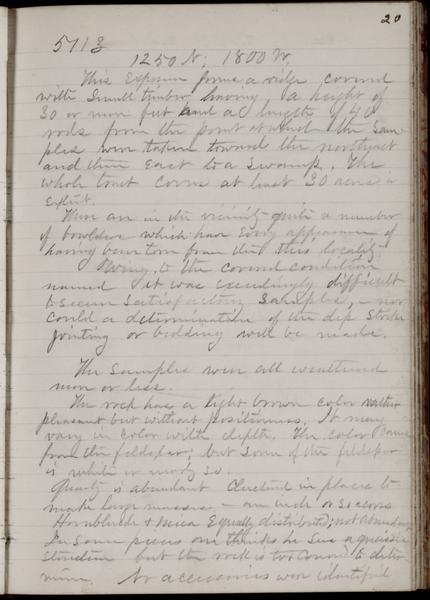 20
5713
1250 N; 1800 W.
This Exposure forms a ridge covered
with Small timber having a height of
30 or more feet and a length of 40
rods from the point at which the Sam-
ples were taken toward the northeast
and then East to a Swamp. The
whole tract covers at least 30 acres in
Extent.
There are in the vicinity quite a number
of bowlders which have Every appearance of
having been torn from this locality.
Owing to the covered condition
named it was exceedingly difficult
to secure satisfactory Samples, nor
could a determination of the dip Strike
jointing or bedding well be made.
The Samples were all weathered
more or less.
The rock has a light brown color rather
pleasant but without positiveness. It may
vary in color with depth. The color comes
from the feldspar; but some of the feldspar
is white or nearly so.
Quartz is abundant Clustered in places to
make large masses – an inch or so across
Hornblende & mica Equally distributed; not abundant
In some pieces one thinks he sees a gneissic
structure but the rock is too coarse to deter-
mine. No accessories were identified